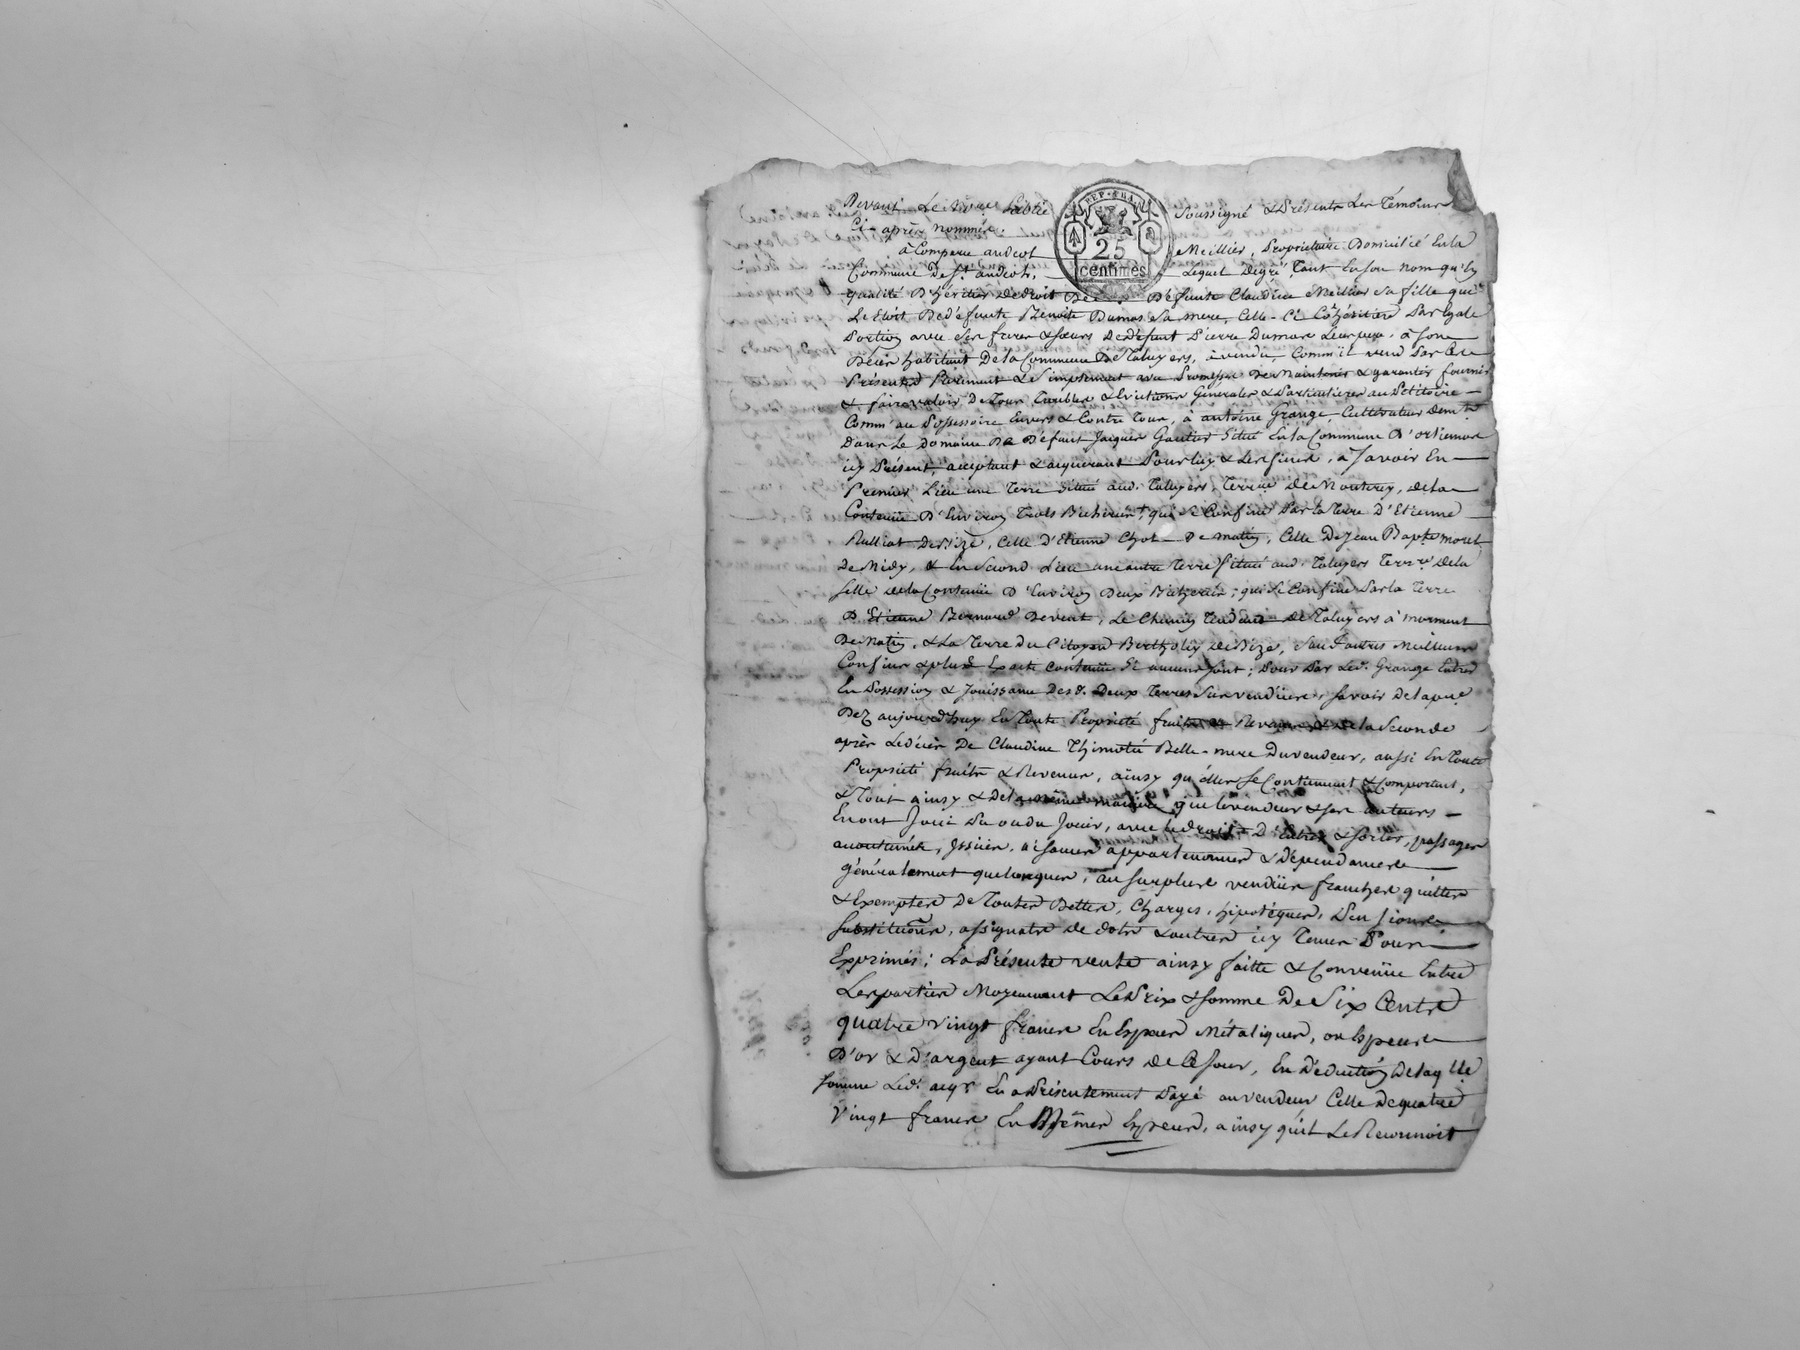 Devant Le No.re Public Soussigné & Présents Les Témoins
REP. FRA.
25
centimes
Ci-après nommés.
à Comparu andéol Meillier, Propriétaire Domicilié En la
Commune De St. andéol, Lequel Degré, Tant En son nom qu'En
qualité D'héritier De droit De Défunte Claudine Meillier Sa fille qui
Le Etoit De défunte Benoite Dumas Sa mere, Celle-Ci Cohéritiere Par Egale
Portion avec Ses freres & sœurs De Défunt Pierre Dumas Leur pere, à Son
Décès habitant De la Commune De Taluyers, à vendu Comm'il vend Par Ces
Présentes Purement & Simplement avec Promesse De Maintenir & garantir fournir
& faire valoir De Tous Troubles & Evictions Générales & Particulieres au Pétitoire
Comm' au Possessoire Envers & Contre Tous, à antoine Grange Cultivateur Dem.t
Dans Le Domaine De Défunt Jacques Gautier Situé En la Commune D'orlienas
icy Présent, acceptant & acquerant Pour luy & Les Siens, à Savoir En
Premier Lieu une Terre Située aud. Taluyers, Terr.re De Montrey, de la
Contenüe D'Environ Trois Bicherées, qui Se Confine Par la Terre D'Etienne
Rulliat De Bize, Celle D'Etienne Chol De matin, Celle De Jean Bapte mout
De Midy, & En Second Lieu une autre Terre Située aud. Taluyers Terr.re De la
Selle de la Contenüe D'Environ Deux Bicherées; qui Se Confine Par la Terre
D'Etienne Bernard De vent, Le Chemin Tendant de Taluyers à mornant
De Matin, & La Terre du Citoyen Bertholey De Bize, Sauf autres Meilleurs
Confins & plus Exacte Contenüe Si aucuns Sont; Pour Par Led. Grange Entrer
En Possession & Jouissance Des d. Deux Terres Sus vendües, Savoir De la pre
Dez aujourd'huy En Toute Propriété fruits & Revenus & de la Seconde
après Le décès De Claudine Thimotée Belle-mere Du vendeur, aussi En Toute
Propriété fruits & Revenus, ainsy qu'elles Se Contiennent & Comportent,
& Tout ainsy & De la même maniere que le vendeur & Ses auteurs
En ont Joui Pu ou du Jouir, avec le droit D'Entrer & Sortir, passages
accoutumés, Issües, aisances appartenances & Dépendances
généralement quelconques, au Surplus vendües franches quittes
& Exemptes De Toutes Dettes, Charges, hipotéques, Pensions
Substitutions, assignats de dots & autres icy Tenus Pour
Exprimés; La Présente vente ainsy faitte & Convenüe Entre
Les parties Moyennant Le Prix & Somme De Six Cents
quatre vingt francs En Espèces Métaliques, ou Especes
D'or & D'argent ayant Cours de Ce Jour, En Déduction De laq.lle
Somme Led. acq.r En a Présentement Payé au vendeur Celle De quatre
Vingt francs En Mêmes Espèces, ainsy qu'il Le Reconnoit